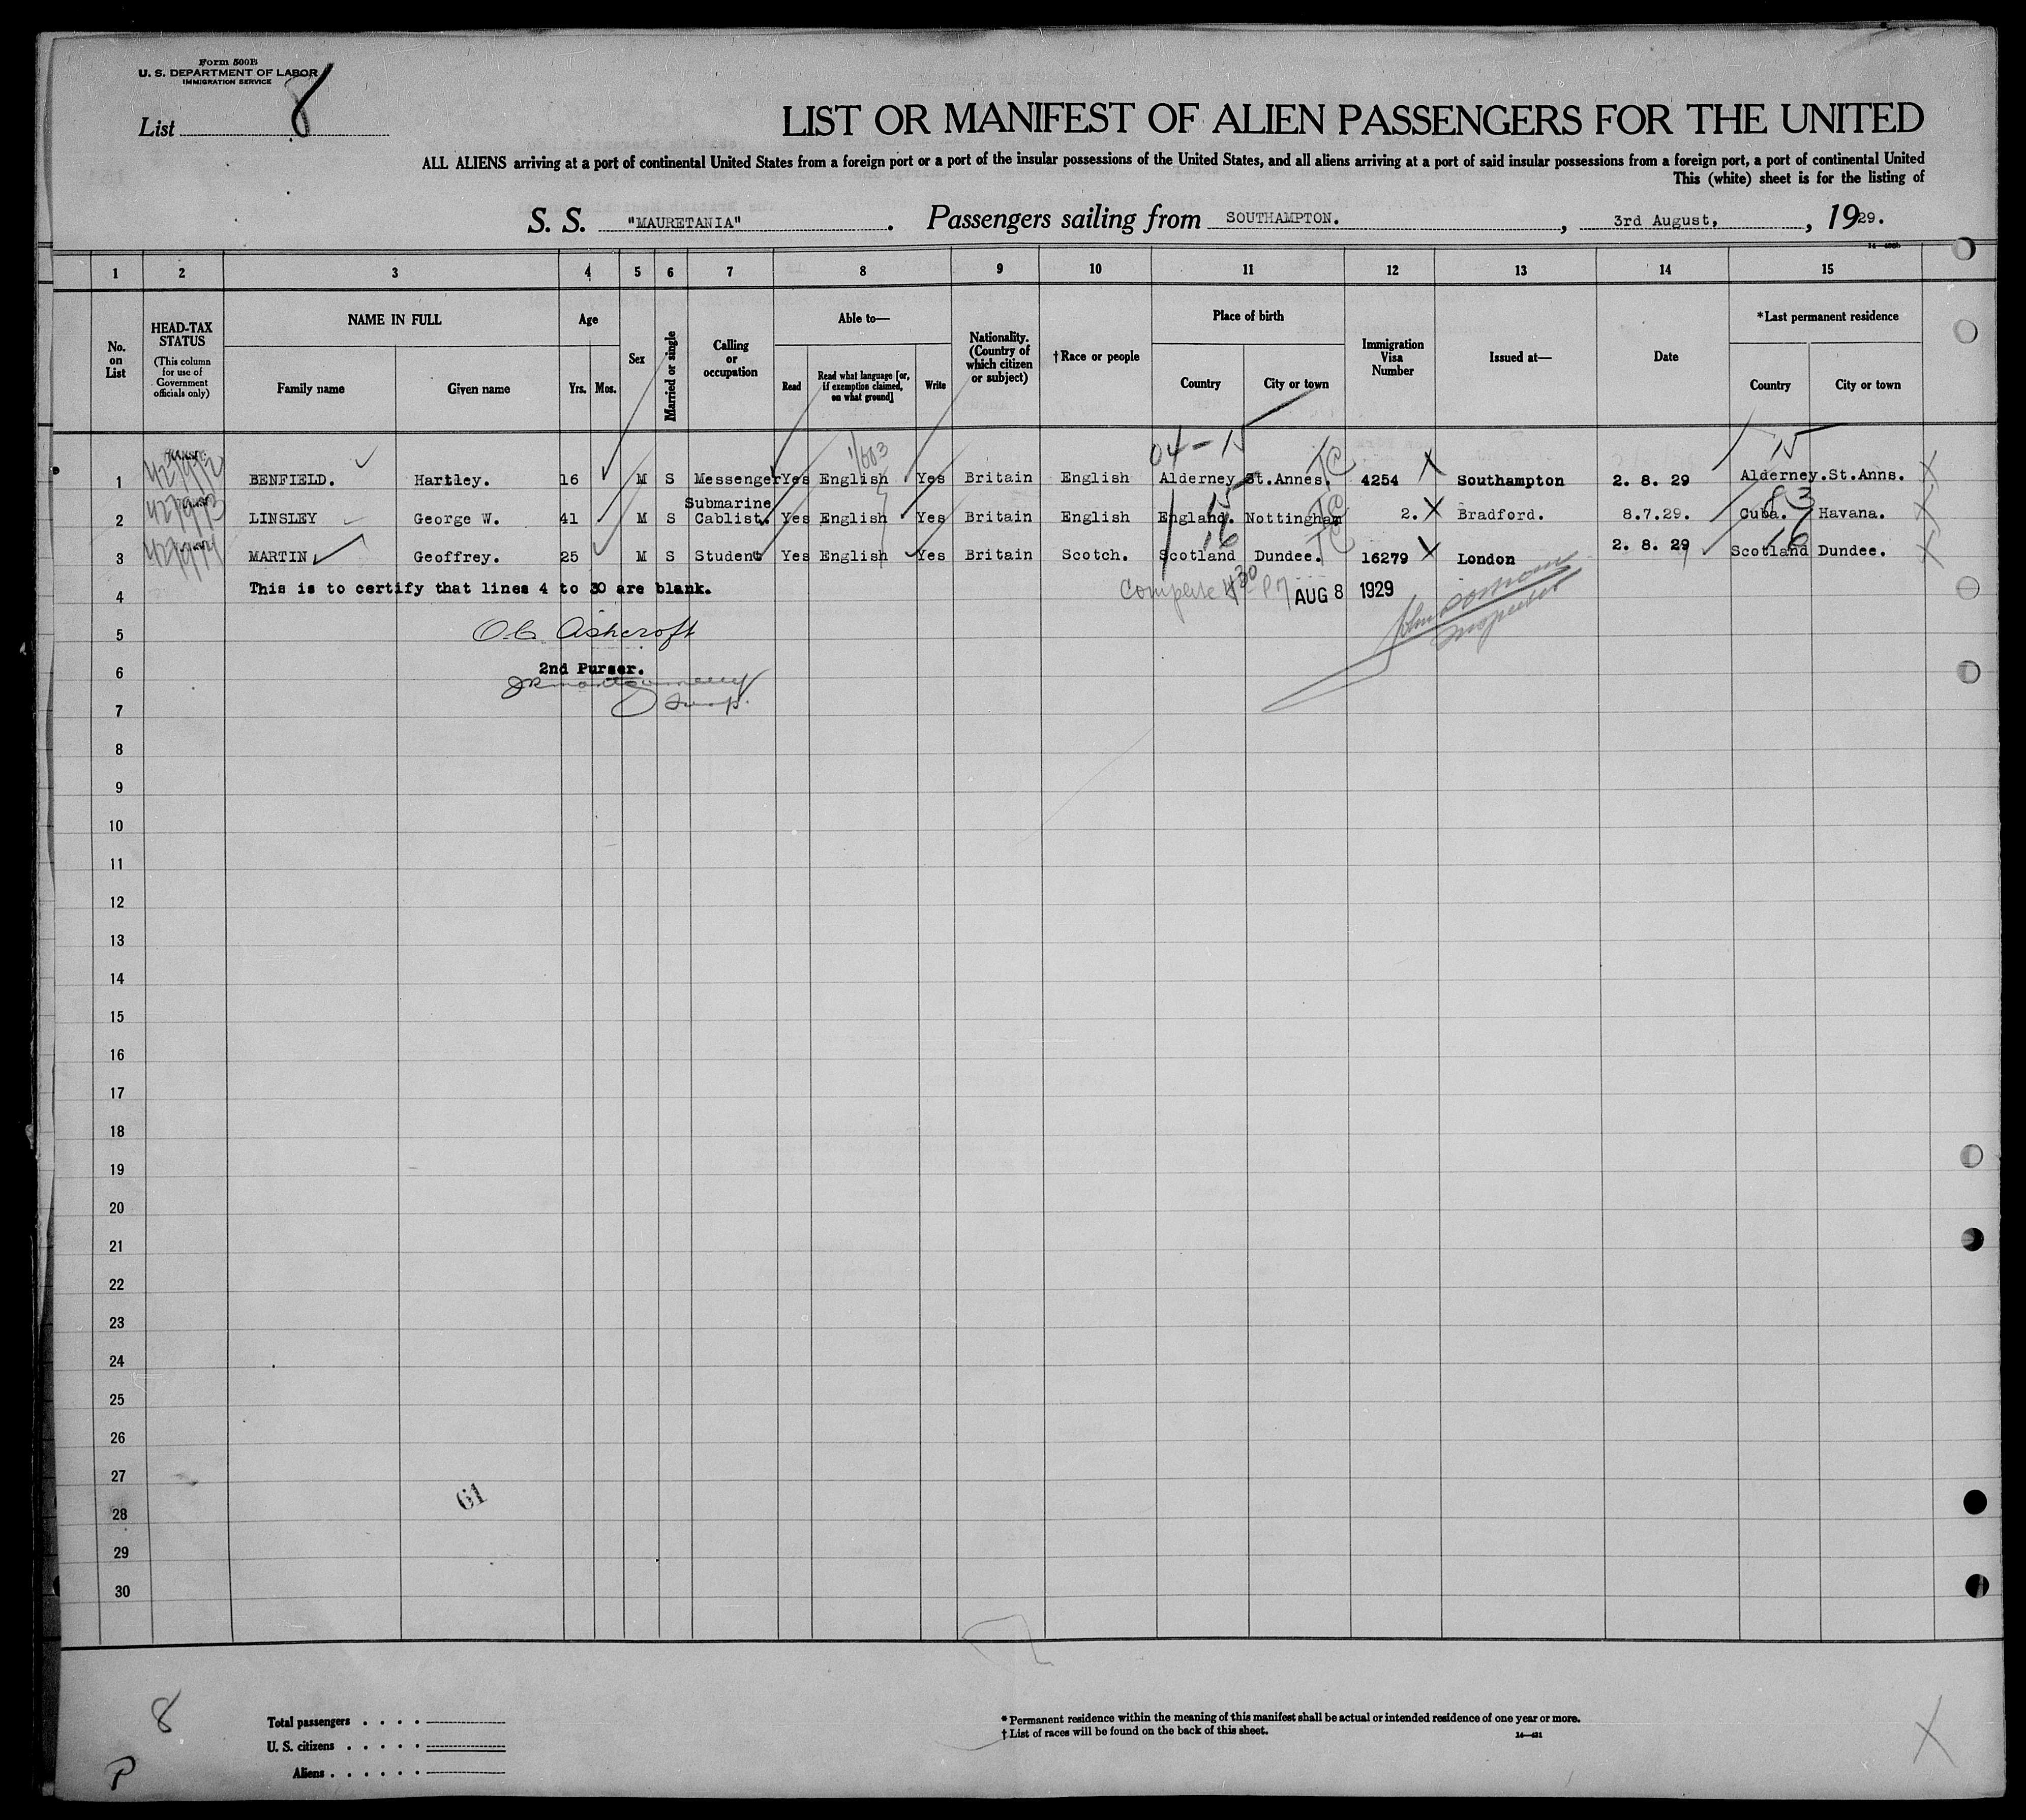 Form 500B
U. S. DEPARTMENT OF LABOR
IMMIGRATION SERVICE
List 8
LIST OR MANIFEST OF ALIEN PASSENGERS FOR THE UNITED
ALL ALIENS arriving at a port of continental United States from a foreign port or a port of the insular possessions of the United States, and all aliens arriving at a port of said insular possessions from a foreign port, a port of continental United
This (white) sheet is for the listing of
S. S. "MAURETANIA". Passengers sailing from SOUTHAMPTON., 3rd August, , 1929.
1 2 3 4 5 6 7 8 9 10 11 12 13 14 15
No. on List
HEAD-TAX STATUS
(This column for use of Government officials only)
NAME IN FULL
Family name
Given name
Age
Yrs.
Mos.
Sex
Married or single
Calling or occupation
Able to—
Read
Read what language [or, if exemption claimed, on what ground]
Write
Nationality. (Country of which citizen or subject)
†Race or people
Place of birth
Country
City or town
Immigration Visa Number
Issued at—
Date
*Last permanent residence
Country
City or town
04-15
15
1 BENFIELD. Hartley. 16 M S Messenger Yes English Yes Britain English Alderney St.Annes. 4254 Southampton 2. 8. 29 Alderney.St.Anns.
2 LINSLEY George W. 41 M S Submarine Cablist. Yes English Yes Britain English England. Nottingham 2. Bradford. 8.7.29. Cuba. Havana.
3 MARTIN Geoffrey. 25 M S Student Yes English Yes Britain Scotch. Scotland Dundee. 16279 London 2. 8. 29 Scotland Dundee.
4 This is to certify that lines 4 to 30 are blank. Complete AUG 8 1929
5 Ashcroft
Inspector
6 2nd Purser.
7
8
9
10
11
12
13
14
15
16
17
18
19
20
21
22
23
24
25
26
27
61
28
29
30
8
P
Total passengers . . . .
U. S. citizens . . . . .
Aliens . . . . . .
* Permanent residence within the meaning of this manifest shall be actual or intended residence of one year or more.
† List of races will be found on the back of this sheet.
X